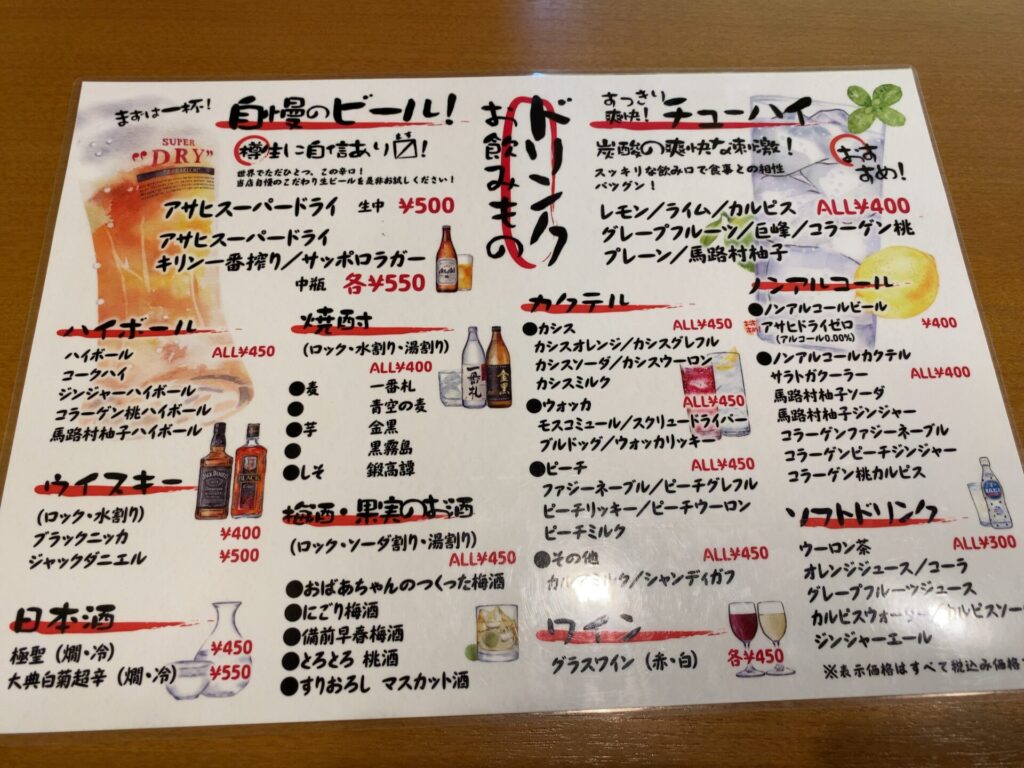 まずは一杯!
自慢のビール!
樽生に自信あり
世界でただひとつ、この辛口!
当店自慢のこだわり生ビールを是非お試しください!
SUPER
"DRY"
アサヒスーパードライ 生中 ¥500
アサヒスーパードライ
キリン一番搾り/サッポロラガー
中瓶 各¥550
ドリンク
お飲みもの
すっきり爽快! チューハイ
炭酸の爽快な刺激!
おすすめ!
スッキリな飲み口で食事との相性
バツグン!
レモン/ライム/カルピス ALL¥400
グレープフルーツ/巨峰/コラーゲン桃
プレーン/馬路村柚子
ハイボール
ハイボール ALL¥450
コークハイ
ジンジャーハイボール
コラーゲン桃ハイボール
馬路村柚子ハイボール
ウイスキー
(ロック・水割り)
ブラックニッカ ¥400
ジャックダニエル ¥500
日本酒
極聖(燗・冷) ¥450
大典白菊超辛(燗・冷) ¥550
焼酎
(ロック・水割り・湯割り)
ALL¥400
●麦 一番札
● 青空の麦
●芋 金黒
● 黒霧島
●しそ 鍛高譚
一番札
金黒
梅酒・果実のお酒
(ロック・ソーダ割り・湯割り)
ALL¥450
●おばあちゃんのつくった梅酒
●にごり梅酒
●備前早春梅酒
●とろとろ 桃酒
●すりおろし マスカット酒
カクテル
●カシス ALL¥450
カシスオレンジ/カシスグレフル
カシスソーダ/カシスウーロン
カシスミルク
●ウォッカ ALL¥450
モスコミュール/スクリュードライバー
ブルドッグ/ウォッカリッキー
●ピーチ ALL¥450
ファジーネーブル/ピーチグレフル
ピーチリッキー/ピーチウーロン
ピーチミルク
●その他 ALL¥450
カルアミルク/シャンディガフ
ワイン
グラスワイン(赤・白) 各¥450
ノンアルコール
●ノンアルコールビール
アサヒドライゼロ ¥400
(アルコール0.00%)
●ノンアルコールカクテル
サラトガクーラー ALL¥400
馬路村柚子ソーダ
馬路村柚子ジンジャー
コラーゲンファジーネーブル
コラーゲンピーチジンジャー
コラーゲン桃カルピス
ソフトドリンク
ウーロン茶 ALL¥300
オレンジジュース/コーラ
グレープフルーツジュース
カルピスウォーター/カルピスソー
ジンジャーエール
※表示価格はすべて税込み価格